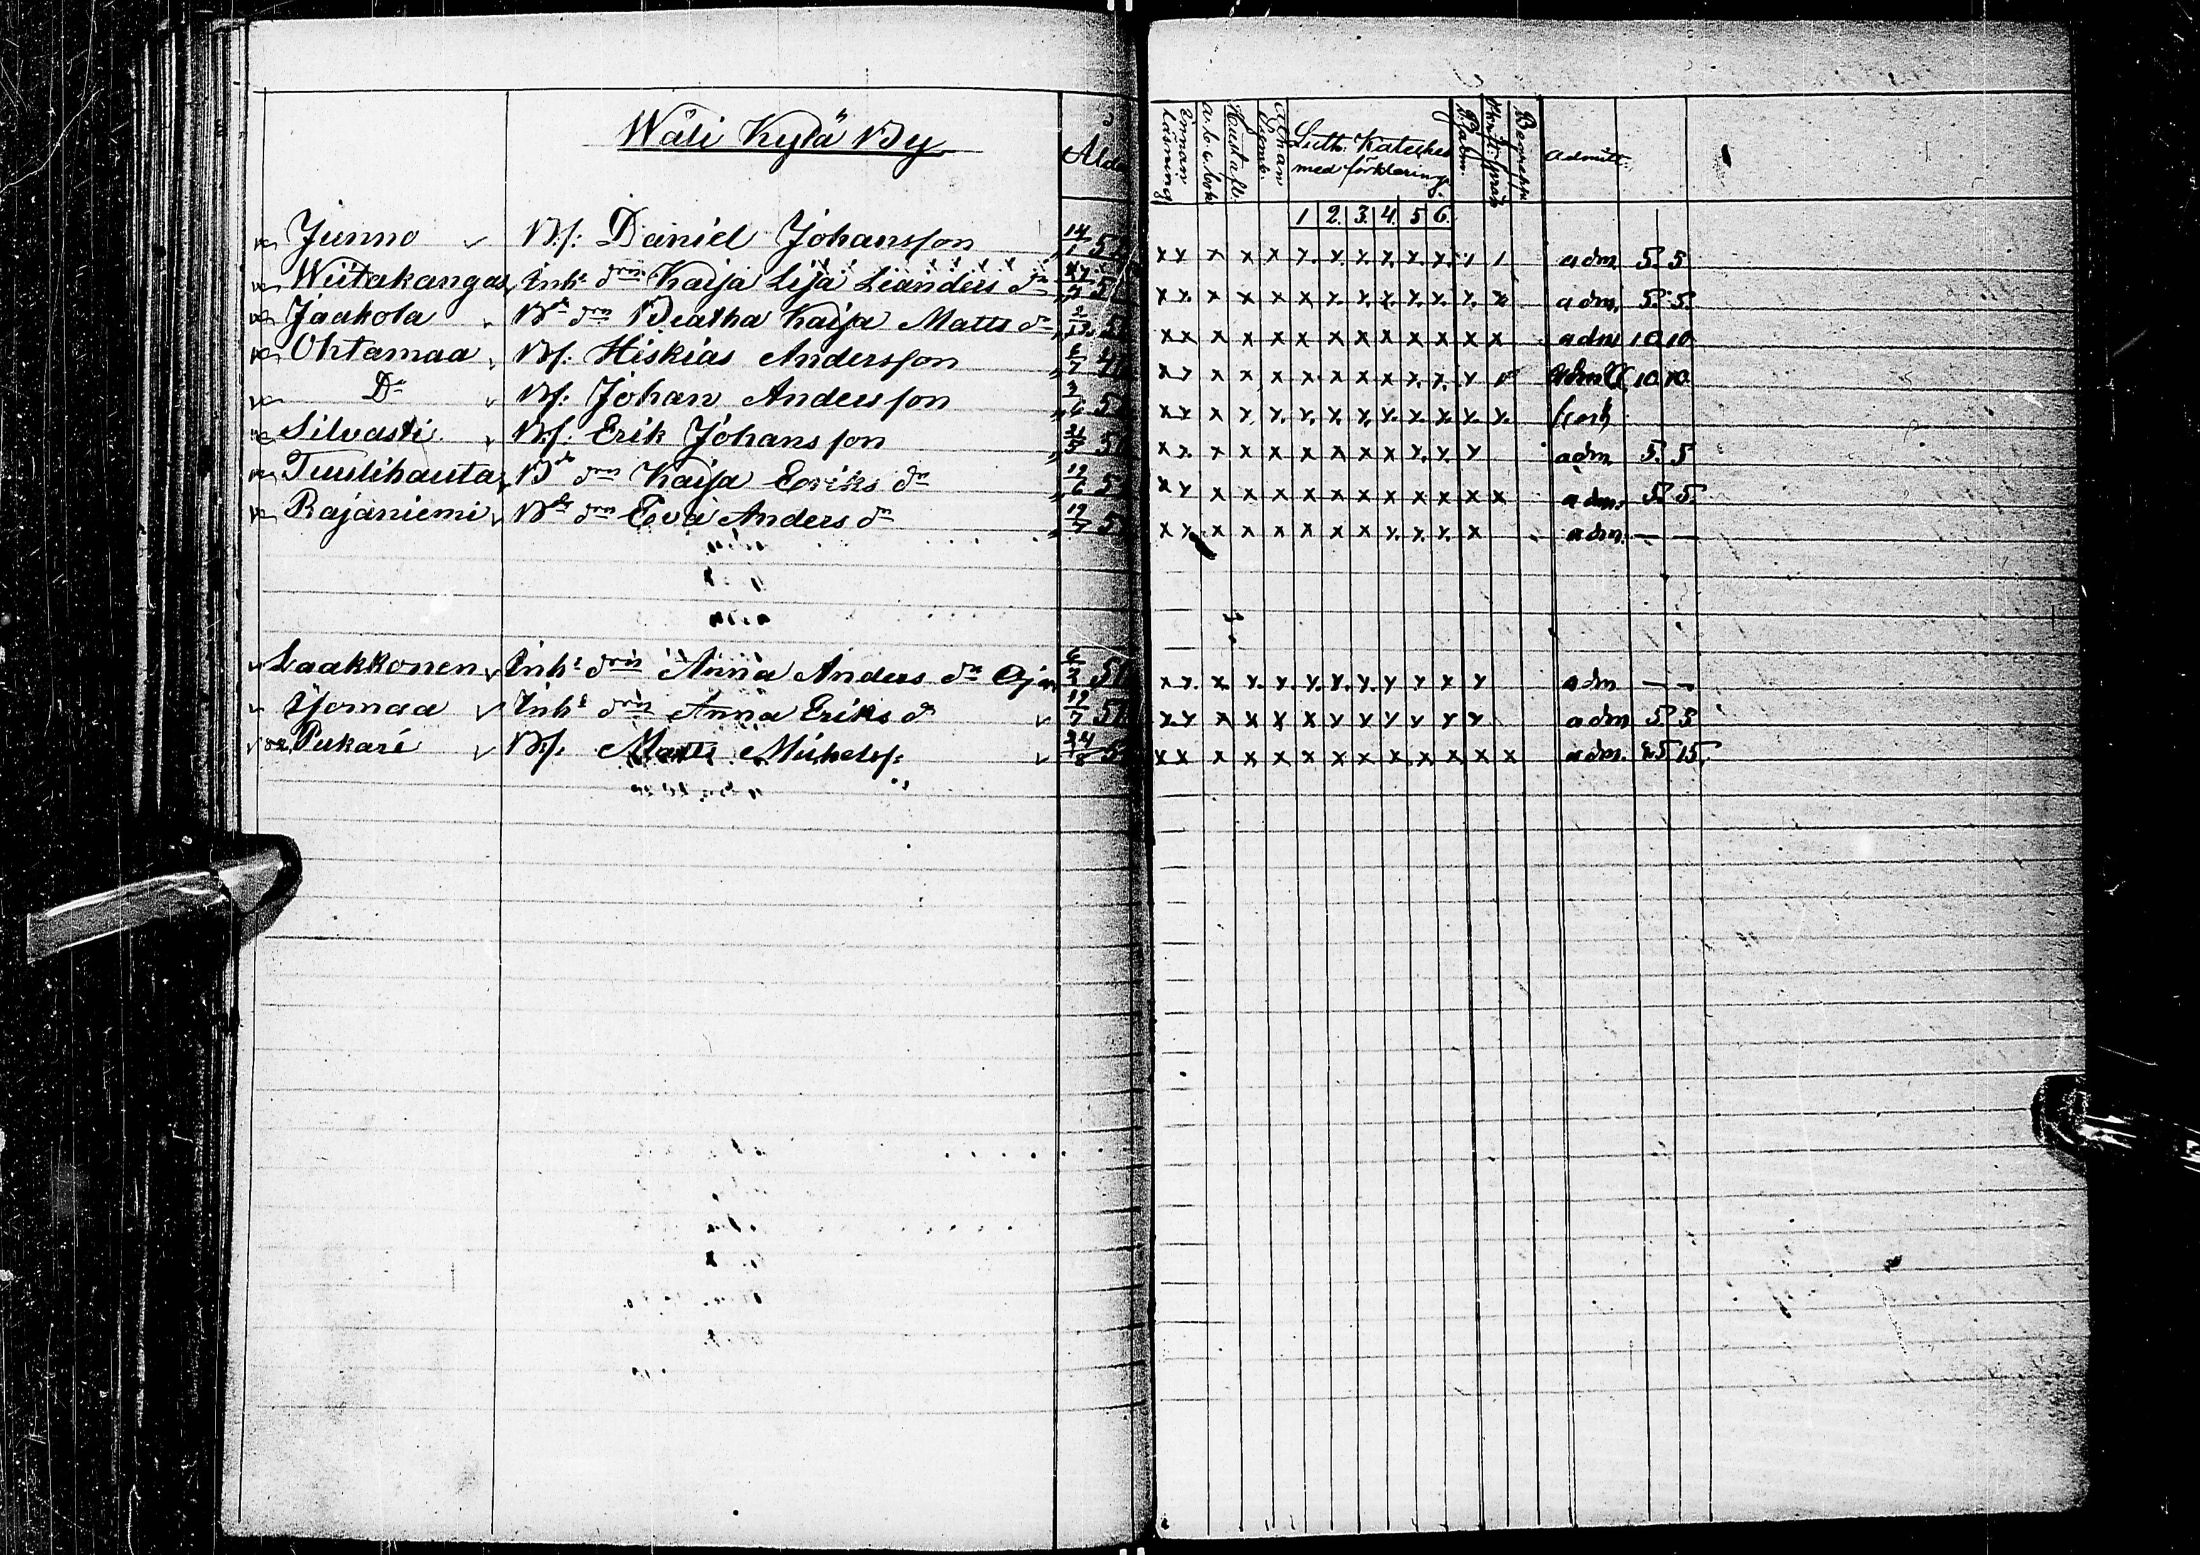 Wäli Kylä By
Ålde
Innan Läsning
a. b. c. bok
Hustafl.
Athan. Symb.
Luth. Kateches med förklaring.
1 2. 3. 4. 5 6.
D. Psalm
Begrepp
admitt.
Junno Bs: Daniel Johansson 14/1 5 x x x x x x x x x x x adm 5. 5
Wiitakangas Inhs drn Kaija Lisa Leanders dr x x x x x x x x x x x adm. 5. 5.
Jaakola Bds drn Beatha Kaisa Matts dr x x x x x x x x x x x x x adm 10 10
Ohtamaa Bs: Hiskias Andersson x x x x x x x x x x x x 10 10
Do Bs: Johan Andersson x x x x x x x x x x x x x
Silvasti Bs: Erik Johansson 21/5 5 x x x x x x x x x x x x adm 5. 5
Tuulihauta Bds drn Kaisa Eriks dr 19/6 5 x x x x x x x x x x x x x adm. 5. 5.
Rajaniemi Bds drn Eva Anders dr 19/7 5 x x x x x x x x x x x x adm. — —
Laakkonen Inhs drn Anna Anders dr 6/2 5 x x x x x x x x x x x x adm — —
Ojamaa Inhs drn Anna Eriks dr 19/7 5 x x x x x x x x x x x x adm 5.
Pukari Bs. Matts Michelss: 24/8 5 x x x x x x x x x x x x x adm. 15.